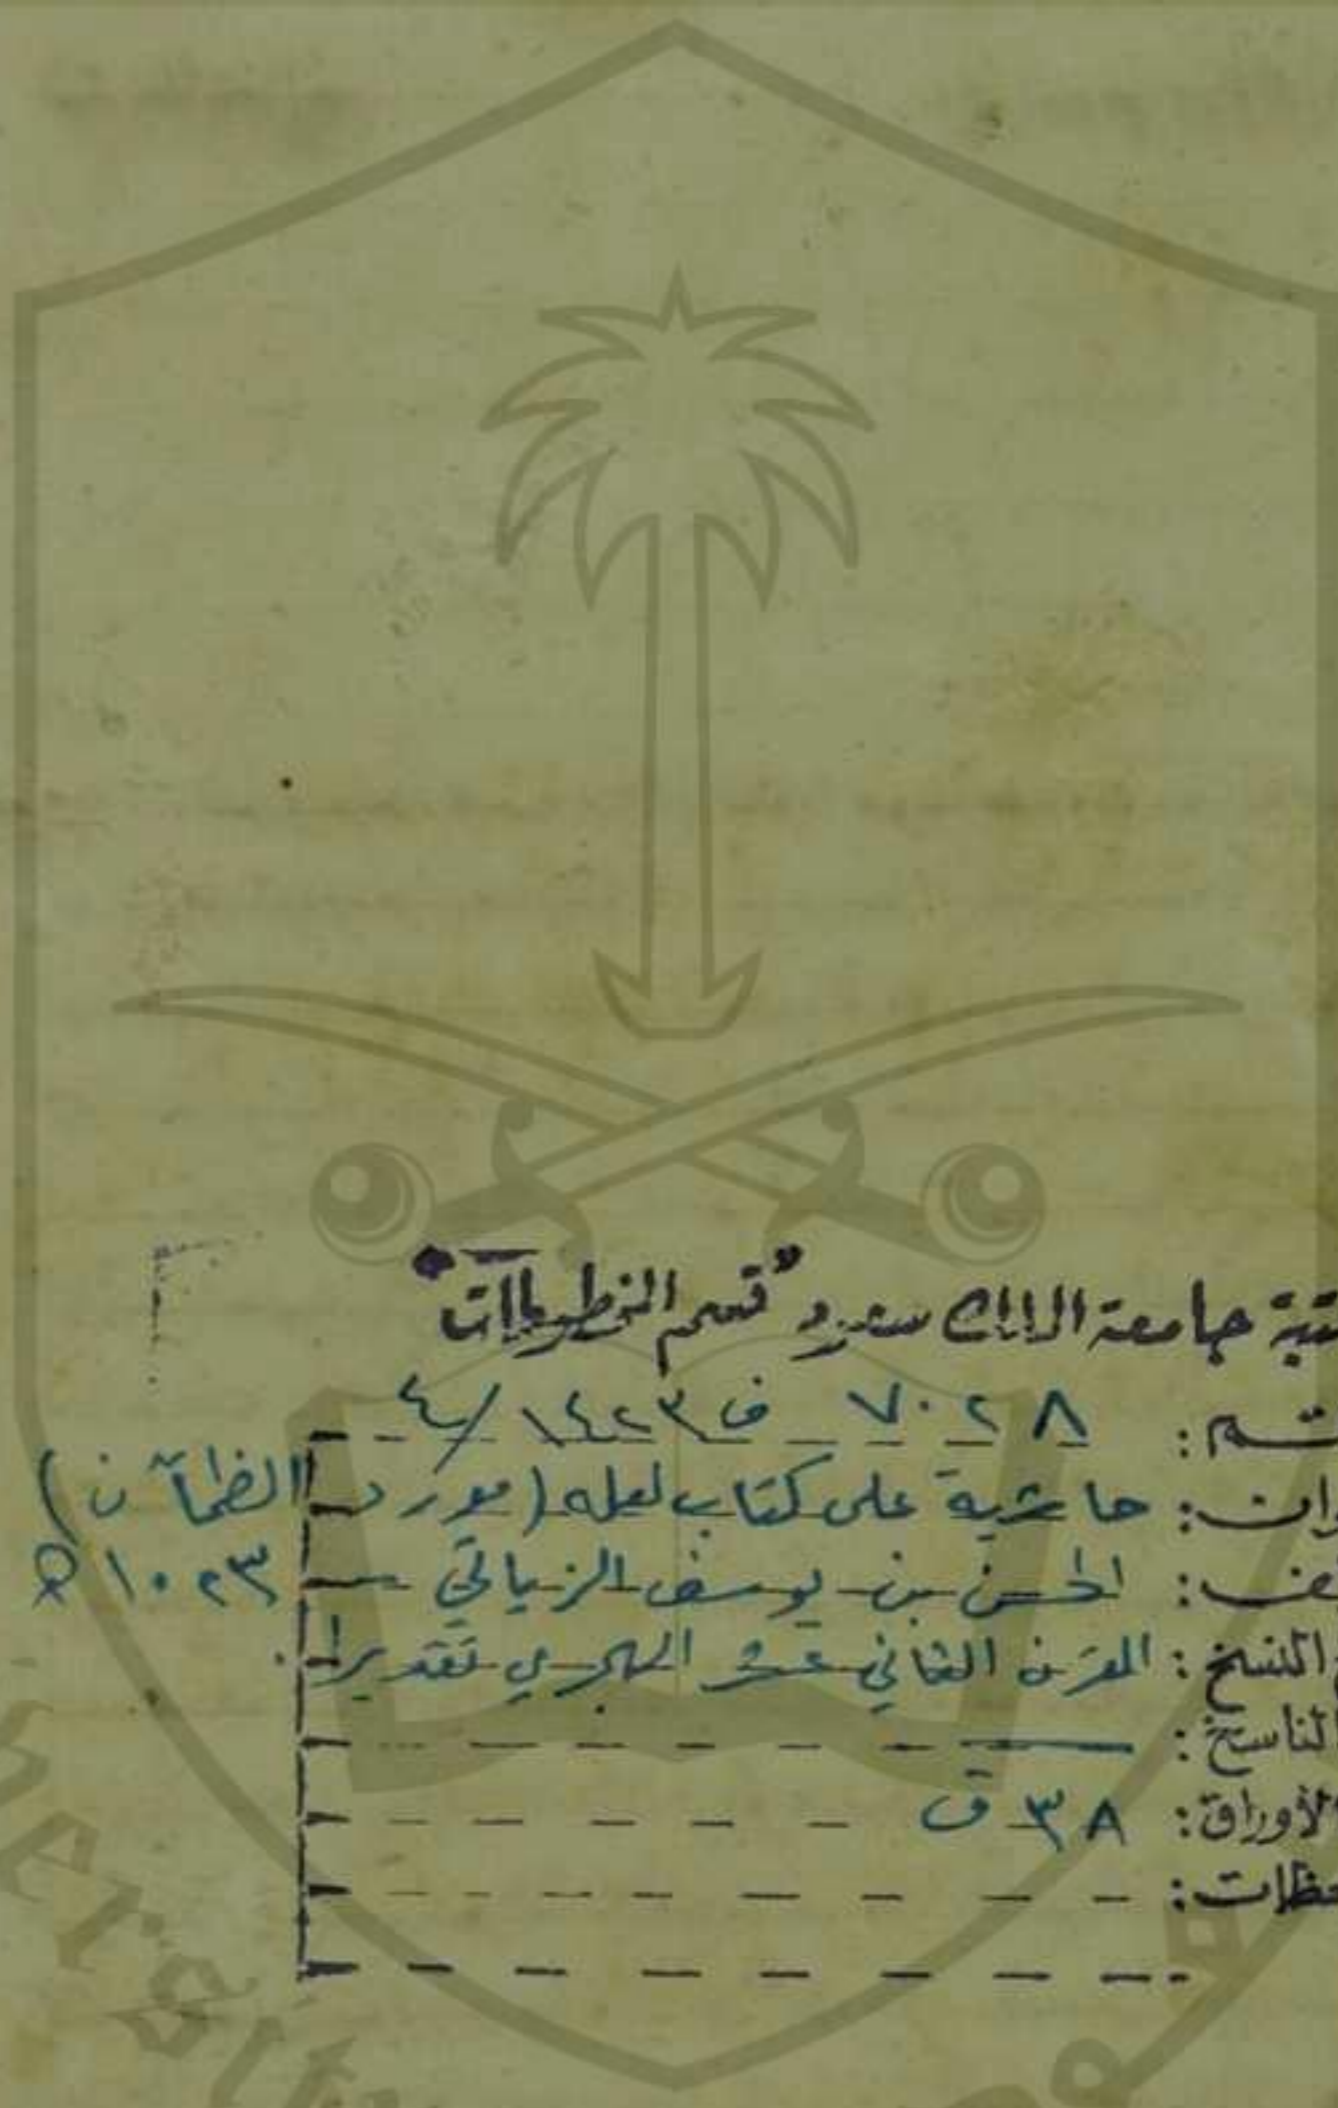 تبة جامعة الملك سعود "قسم المخطوطات"
ـم: ٧٠٢٨ ف ١٤٢٣/٤
ـوان: حاشية على كتاب لعله (مورد الظمآن)
ـف: الحسن بن يوسف الزياتي - ١٠٢٣ هـ
النسخ: القرن الثاني عشر الهجري تقديرا.
الناسخ:
الأوراق: ٣٨ ق
ـظات: